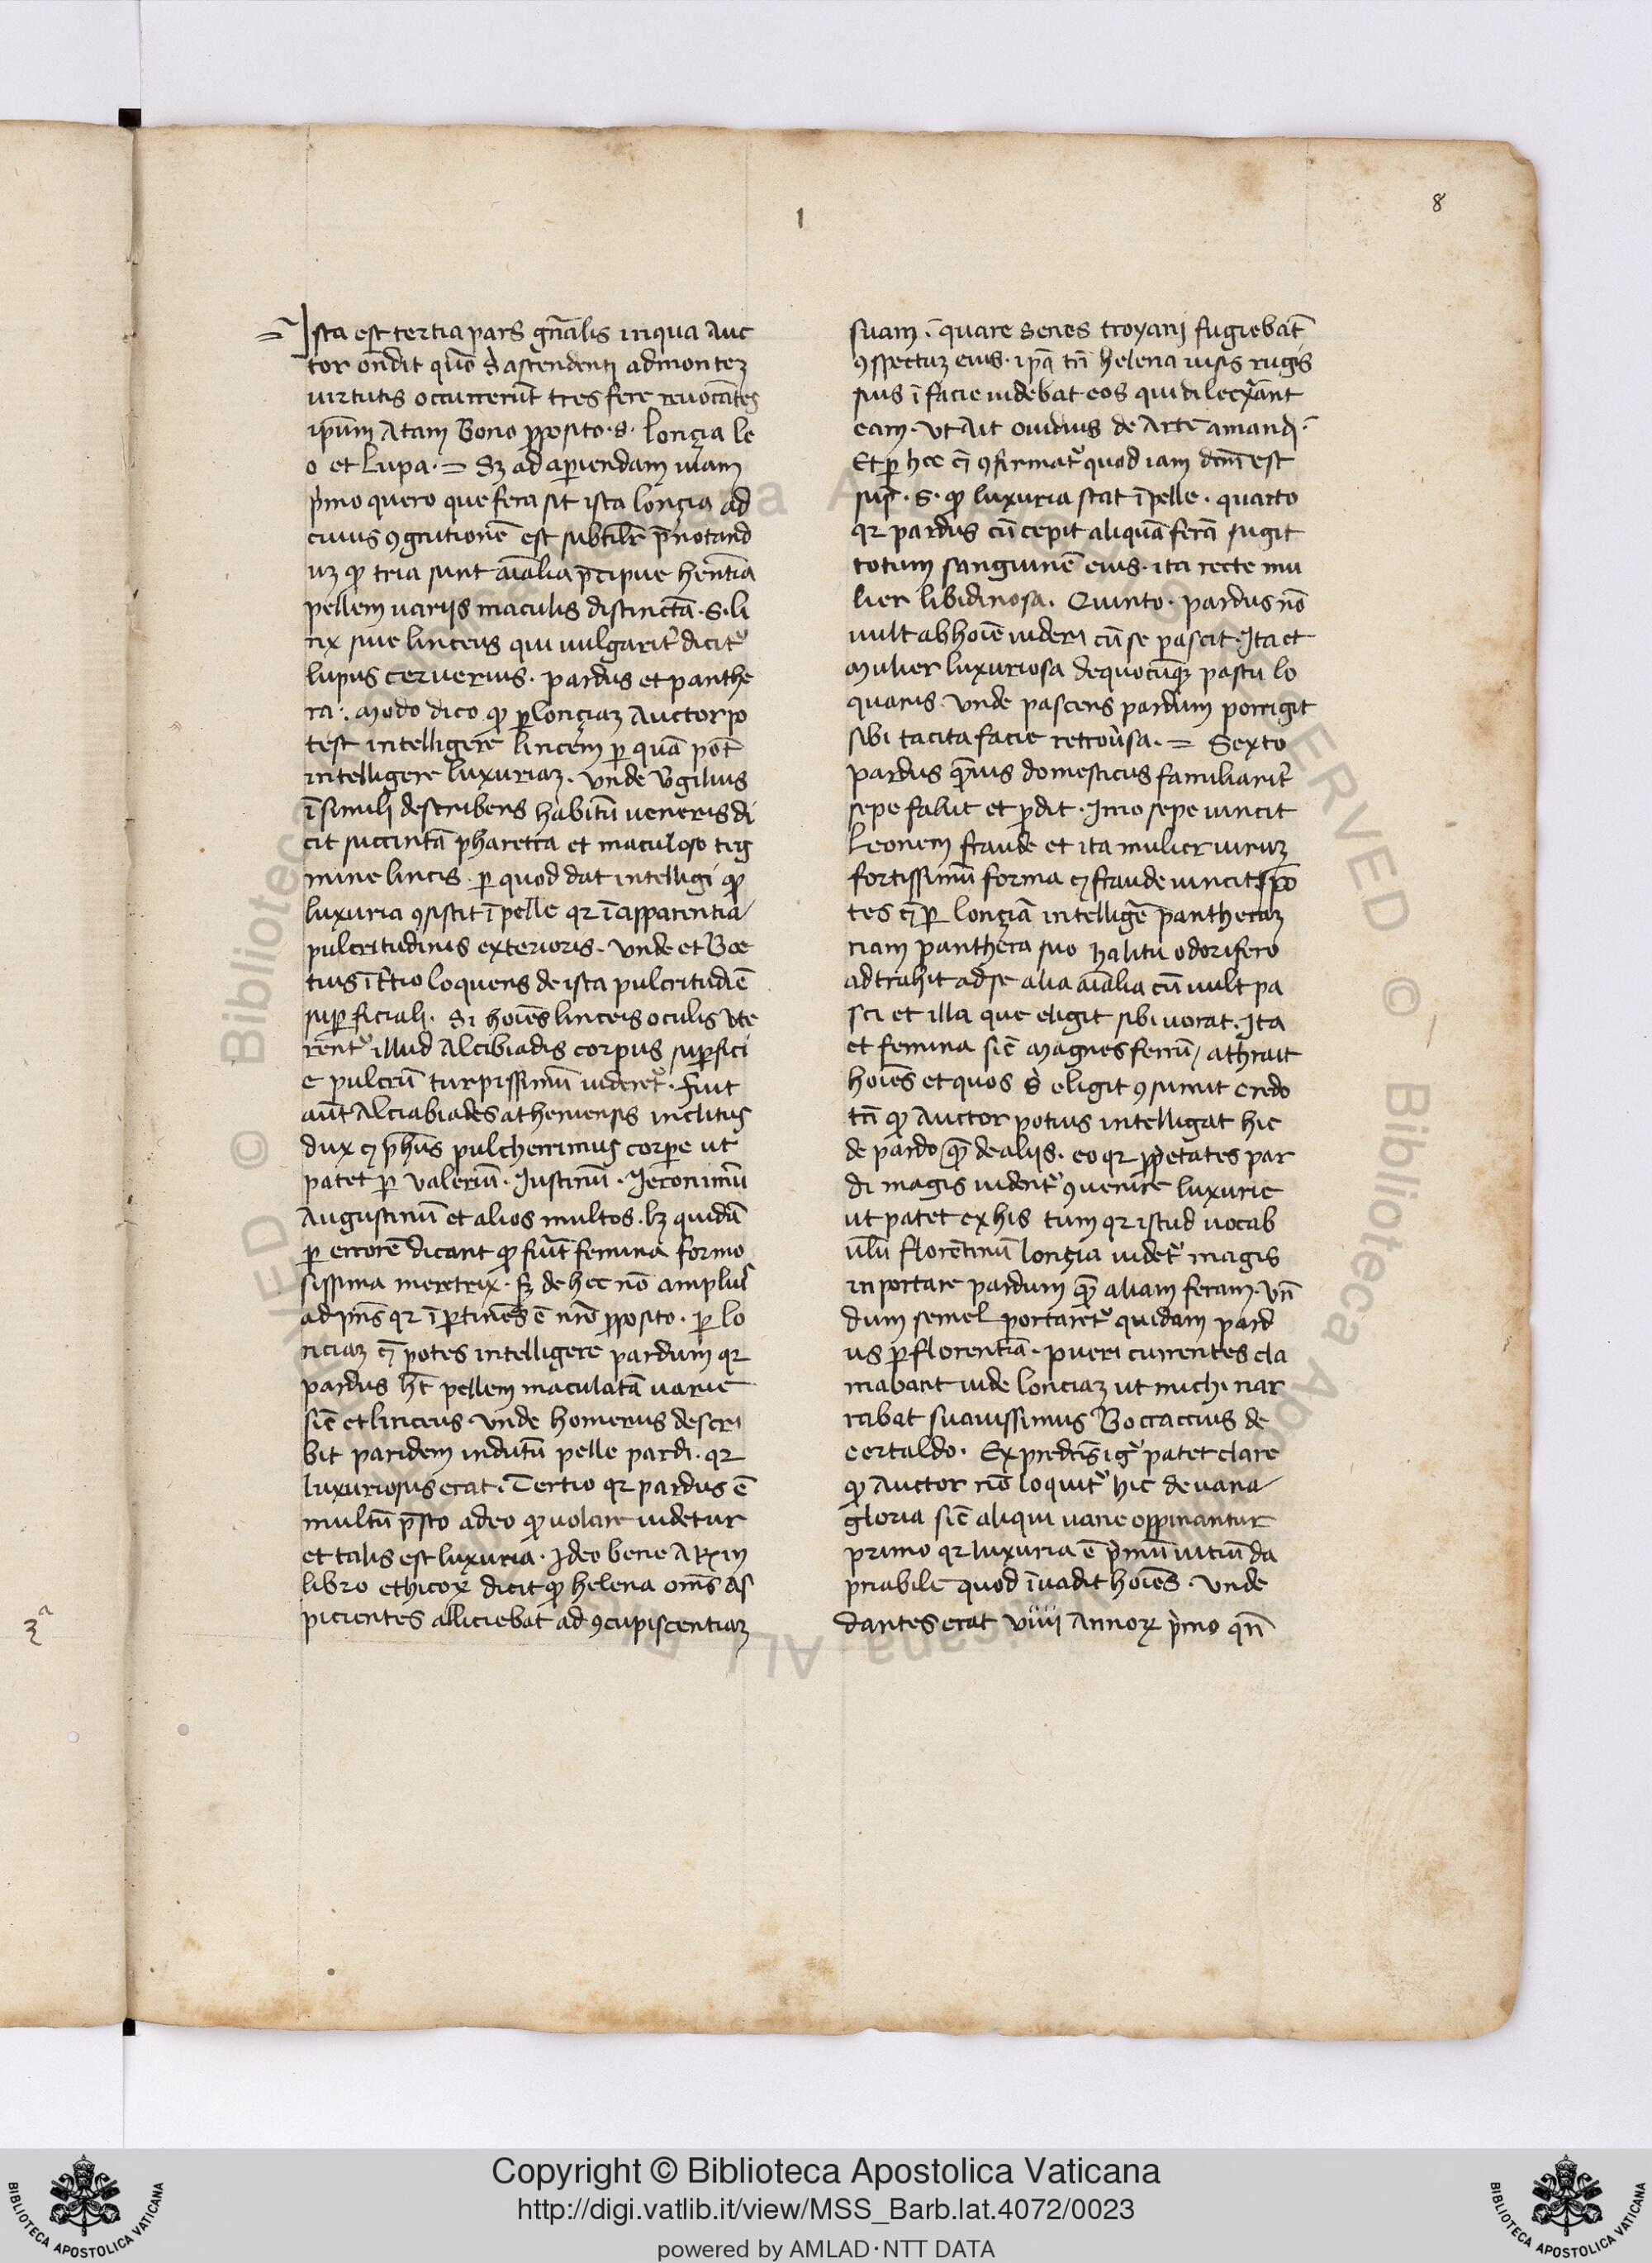 1
8
= Ista est tertia pars gñalis in qua Auc
tor oñdit quō S ascendenti ad montez
uirtutis occurrerūt tres fere reuocātes
ip̄um A tam Bono p̄posito · S · lonçia le
o et Lupa · = Sz ad ap̱iendam uiam
p̓mo quero que fera sit ista lonçia ad
cuius ꝯgnitionē est subtilr̄ p̄notand
uz ꝙ tria sunt aīalia p̄cipue hēntia
pellem uarijs maculis distinctā · S · li
nx siue linceus qui uulgarit̓ dicit᷑
lupus ceruerius · pardus et panthe
ra · Modo dico ꝙ ꝑ lonçiaz Auctor po
test intelligere lincem ꝑ quā pōt
intelligere luxuriaz · Vnde V̓gilius
ī simili describens habitū ueneris di
cit succintā pharetra et maculoso teg
mine lincis · ꝑ quod dat intelligi ꝙ
luxuria ꝯsistit ī pelle qr ī apparentia
pulcritudinis exterioris · Vnde et Boe
tius ī t̓tio loquens de ista pulcritudīe
suꝑficiali · Si hoīes linceis oculis Vte
rent᷑ illud Alcibiadis corpus suꝑfici
e pulcrū turpissimū uideret᷑ · Fuit
aūt Alciabiades atheniensis inclitus
dux ⁊ p̄hūs pulcherrimus corꝑe ut
patet ꝑ Valeriū · Iustinū · Ieronimū
Augustinū et alios multos · lz quidā
ꝑ errorē dicant ꝙ fuit femina formo
sissima meretrix · Sz de hec nō amplus
ad pn̄s qr īꝑtinēs ē nr̄o ꝓposito · ꝑ lo
nciaz ⁊ potes intelligere pardum qr
pardus hт̄ pellem maculatā uarie
sic̄ et linceus Vnde homerus descri
bit paridem indutū pelle pardi · qr
luxuriosus erat · Tertio qr pardus ē
multū p̄sto adeo ꝙ uolare uidetur
et talis est luxuria · Ideo bene AR̄ in
libro ethicoꝝ dicit ꝙ helena om̄s as
picientes alliciebat ad ꝯcupiscentiaz
suam · quare Senes troyani fugiebāt
ꝯspectuz eius · ip̄a tn̄ helena uisis rugis
suis ī facie uidebat eos qui dilexerant
eam · Vt Ait ouidius de Arte amandi ·
Et ꝑ hec ⁊ ꝯfirmat᷑ quod iam dc̄m est
sup̄ · S · ꝙ luxuria stat ī pelle · quarto
qr pardus cū cepit aliquā ferā sugit
totum sanguinē eius · ita recte mu
lier libidinosa · Quinto · pardus nō
uult ab hoīe uideri cū se pascit · Ita et
mulier luxuriosa de quocūqz pastu lo
quaris · Vnde pascens pardum porrigit
sibi tacita facie retrou̓sa · = Sexto
pardus quis domesticus familiarit̓
sepe fallit et ꝑdit · Imo sepe uincit
Leonem fraude et ita mulier uiruz
fortissimū forma ⁊ fraude uincit po
tes ⁊ ꝑ lonçiā intelligē pantheraz
nam panthera suo halitu odorifero
adtrahit ad se alia aīalia cū uult pa
sci et illa que eligit sibi uorat · Ita
et femina sic̄ Magnes ferrū / athrait
hoīes et quos S eligit ꝯsumit credo
tn̄ ꝙ Auctor potius intelligat hic
de pardo q̄ de alijs · eo qr ꝓp̓etates par
di magis uident᷑ ꝯuenire luxurie
ut patet ex his tum qr istud uocab
ulū florentinū lonçia uidet᷑ magis
inportare pardum q̄ aliam feram · Vn̄
dum semel portaret᷑ quidam pard
us ꝑ florentiā · pueri currentes cla
mabant uide lonciaz ut michi nar
rabat suauissimus Boccaccius de
certaldo · Ex predictis ig̓ patet clare
ꝙ Auctor nō loquit᷑ hic de uana
gloria sic̄ aliqui uane oppinantur
primo qr luxuria ē p̓mū uitiū da
pnabile quod īuadit hoīes · Vnde
dantes erat Viiii Annoꝝ p̓mo qn̄
3ª
Copyright © Biblioteca Apostolica Vaticana
http://digi.vatlib.it/view/MSS_Barb.lat.4072/0023
powered by AMLAD·NTT DATA
BIBLIOTECA APOSTOLICA VATICANA
BIBLIOTECA APOSTOLICA VATICANA